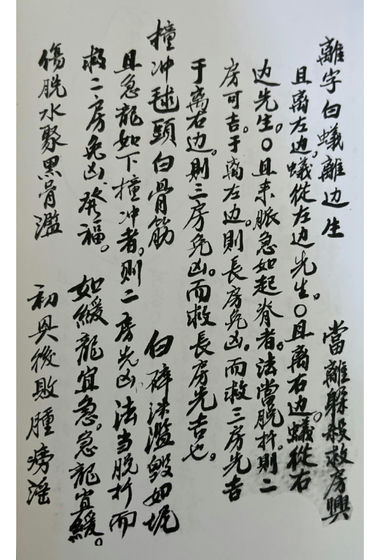 離字白蟻離边生　當離躲殺救房興
且离左边,蟻從左边先生。〇且离右边,蟻從右
边先生。〇且来脈急如起脊者。法當脱杀。則二
房可吉。于离左边。則長房免凶。而救三房先吉
于离右边。則三房免凶。而救長房先吉也。
撞冲毬頭白骨筋　白碎法濫毀如坭
且急龍如下撞冲者。則二房先凶。法当脱杀而
救二房免凶發福。如緩龍宜急。急龍宜緩。
傷脱水聚黑骨濫　初興後敗腫癆淫